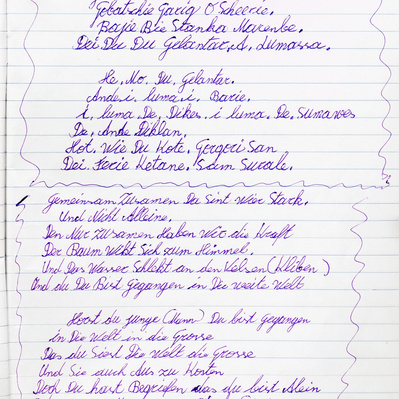 Gebatschie Garig O Scheerie.
Baje Bie Stanka Marenbe.
Dei Du Du Gelantar, A, Lumassa.
He, Mo, Du, Gelantar.
Ande, i, luma, i, Barie.
i, luma, De, Dikes, i luma, De, Sumawes
De, Ande Diklan,
Hot, Wie Du Kote, Gorgori San
Dei, Ferie Ketane, Sam Surale.
Gemeinsam Zusamen Du Sint Wier Stark.
Und Nicht Alleine.
Den Nur Zusamen Haben Wir die Kraft
Der Baum Wekst Sich zum Himmel.
Und Das Wasser Schlekt an den Velsen
Und du Du Bist Gegangen in Die weite Welt
Horst du junge (Mann) Du bist gegangen
in Die Welt in die Grosse
Das du Siest Die Welt die Grosse
Und Sie auch Aus zu Kosten
Doch Du hast Begrießen das du bist Alein